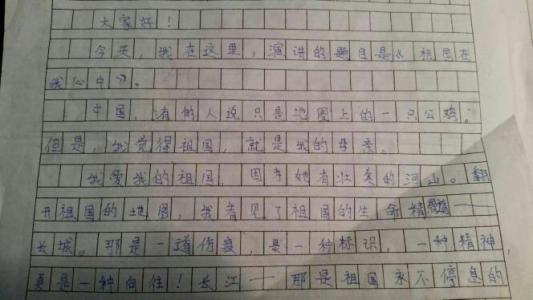 大家好！
今天，我在这里，演讲的题目是《祖国在
我心中》。
中国，有的人说只是地图上的一只公鸡。
但是，我觉得祖国，就是我的母亲。
我爱我的祖国 因为她有壮美的河山。翻
开祖国的地图，我看见了祖国的生命精髓——
长城。那是一道伤疤，是一种标识，一种精神，
更是一种向往！长江——那是祖国永不停息的